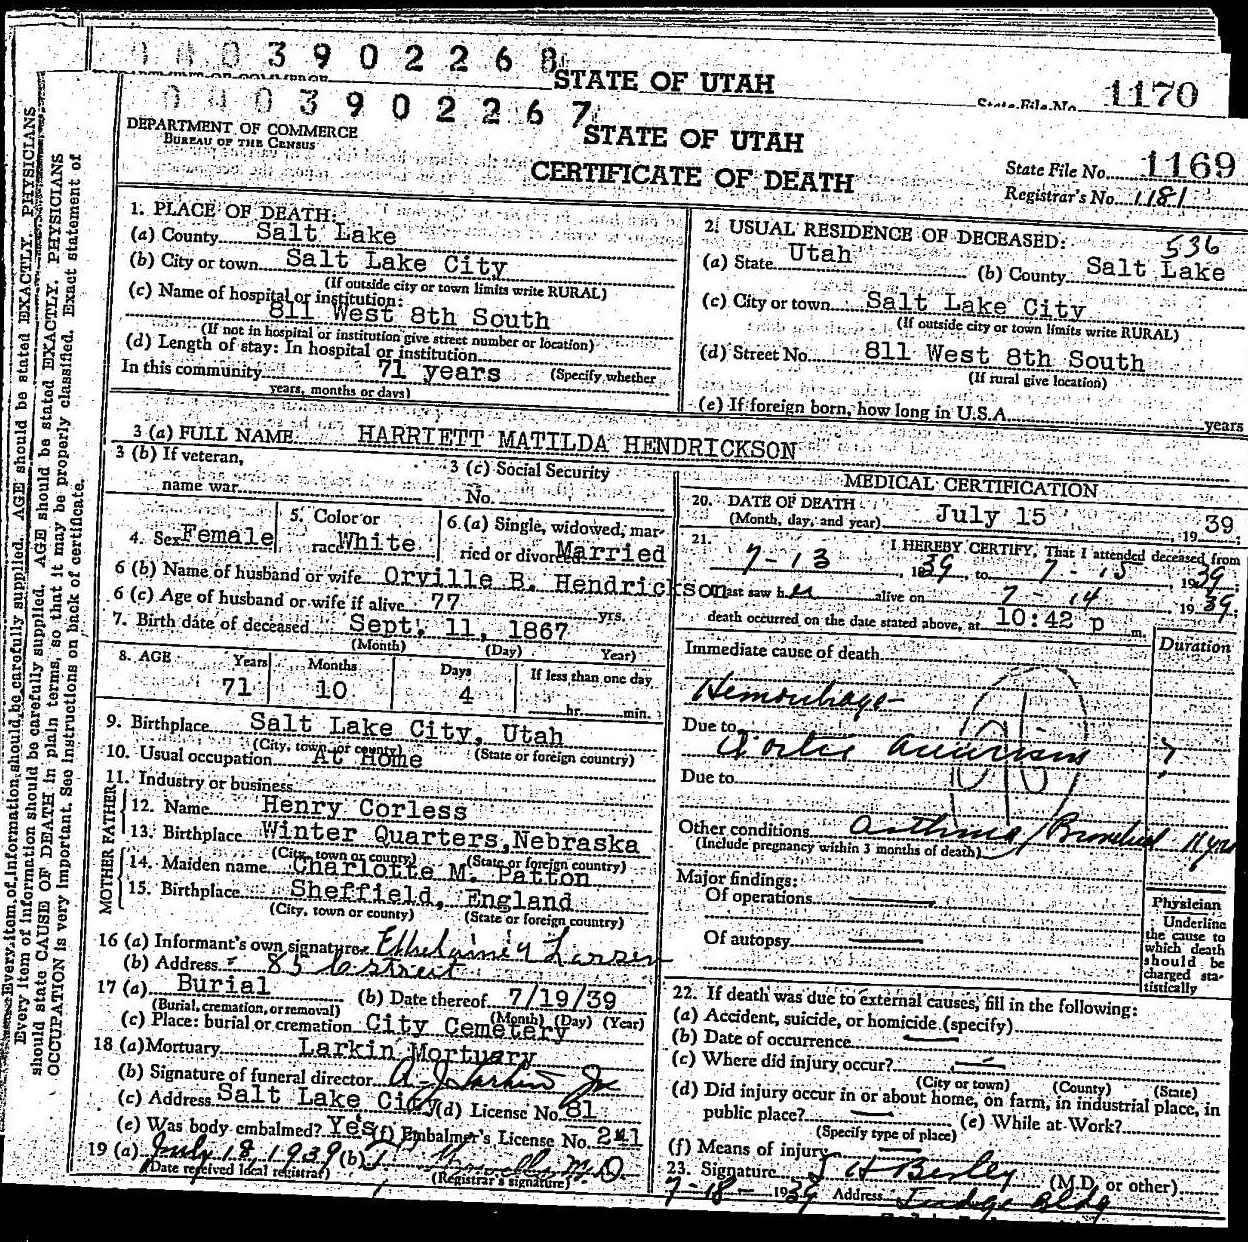 0403902268
STATE OF UTAH
State File No. 1170
0403902267
DEPARTMENT OF COMMERCE
BUREAU OF THE CENSUS
STATE OF UTAH
CERTIFICATE OF DEATH
State File No. 1169
Registrar's No. 1181
Every item of information should be carefully supplied. AGE should be stated EXACTLY. PHYSICIANS
Every item of information should be carefully supplied. AGE should be stated EXACTLY. PHYSICIANS
should state CAUSE OF DEATH in plain terms, so that it may be properly classified. Exact statement of
OCCUPATION is very important. See instructions on back of certificate.
1. PLACE OF DEATH:
(a) County Salt Lake
(b) City or town Salt Lake City
(If outside city or town limits write RURAL)
(c) Name of hospital or institution:
811 West 8th South
(If not in hospital or institution give street number or location)
(d) Length of stay: In hospital or institution
In this community 71 years (Specify whether
years, months or days)
2. USUAL RESIDENCE OF DECEASED: 536
(a) State Utah (b) County Salt Lake
(c) City or town Salt Lake City
(If outside city or town limits write RURAL)
(d) Street No. 811 West 8th South
(If rural give location)
(e) If foreign born, how long in U.S.A. years
3 (a) FULL NAME HARRIETT MATILDA HENDRICKSON
3 (b) If veteran,
name war
3 (c) Social Security
No.
4. Sex Female
5. Color or
race White
6. (a) Single, widowed, mar-
ried or divorced Married
6 (b) Name of husband or wife Orville B. Hendrickson
6 (c) Age of husband or wife if alive 77 yrs.
7. Birth date of deceased Sept. 11, 1867
(Month) (Day) Year)
8. AGE Years Months Days If less than one day
71 10 4 hr. min.
9. Birthplace Salt Lake City, Utah
(City, town or county) (State or foreign country)
10. Usual occupation At Home
11. Industry or business
FATHER
12. Name Henry Corless
13. Birthplace Winter Quarters, Nebraska
(City, town or county) (State or foreign country)
MOTHER
14. Maiden name Charlotte M. Patton
15. Birthplace Sheffield, England
(City, town or county) (State or foreign country)
16 (a) Informant's own signature Larsen
(b) Address
17 (a) Burial (b) Date thereof 7/19/39
(Burial, cremation, or removal) (Month) (Day) (Year)
(c) Place: burial or cremation City Cemetery
18 (a) Mortuary Larkin Mortuary
(b) Signature of funeral director A. J. Larkin Jr
(c) Address Salt Lake City (d) License No. 81
(e) Was body embalmed? Yes (f) Embalmer's License No. 241
19 (a) July 18, 1939 (b) M.D.
(Date received local registrar) (Registrar's signature)
MEDICAL CERTIFICATION
20. DATE OF DEATH
(Month, day, and year) July 15, 1939;
21. I HEREBY CERTIFY, That I attended deceased from
7-13, 1939, to 7-15, 1939;
I last saw her alive on 7-14, 1939;
death occurred on the date stated above, at 10:42 p m.
Immediate cause of death Duration
Hemorrhage
Due to
Aortic aneurism ?
Due to
Other conditions Asthma, Bronchial 11 yrs
(Include pregnancy within 3 months of death)
Major findings:
Of operations
Of autopsy
Physician
Underline
the cause to
which death
should be
charged sta-
tistically
22. If death was due to external causes, fill in the following:
(a) Accident, suicide, or homicide (specify)
(b) Date of occurrence
(c) Where did injury occur?
(City or town) (County) (State)
(d) Did injury occur in or about home, on farm, in industrial place, in
public place? (e) While at Work?
(Specify type of place)
(f) Means of injury
23. Signature (M.D. or other)
7-18-1939 Address Judge Bldg